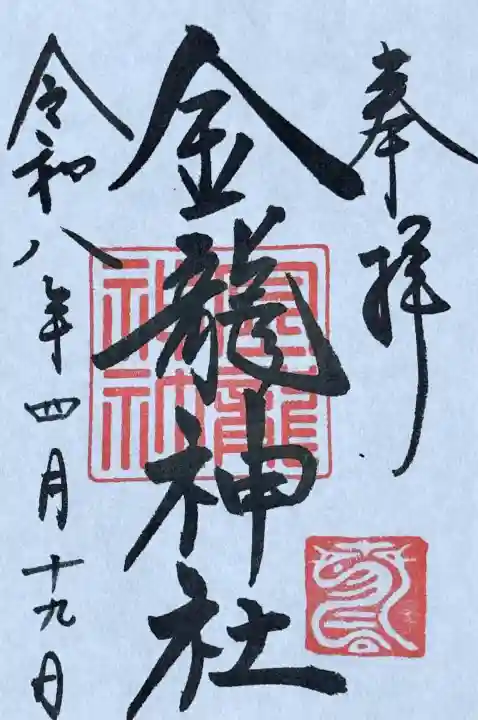 奉拝
金龍神社
令和八年四月十九日